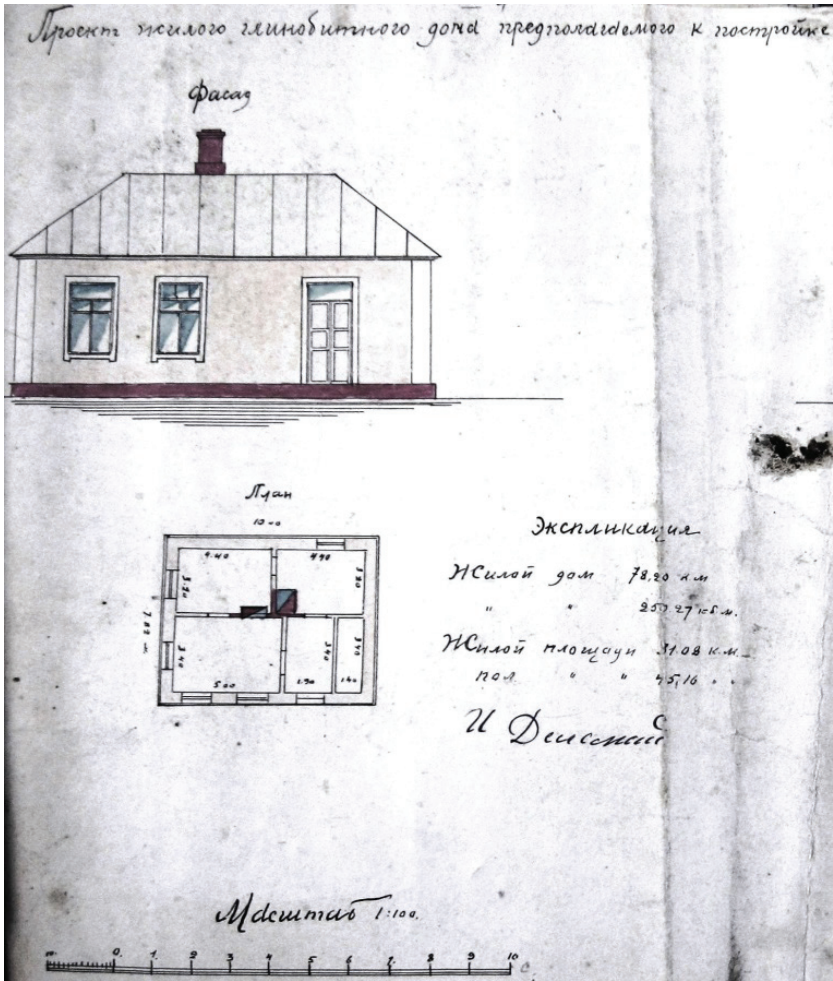 Проект жилого глинобитного дома предполагаемого к постройке
Фасад
План
10.00
4.40
4.40
3.20
3.20
7.82 м
3.40
5.00
3.40
2.30
3.40
1.40
Экспликация
Жилой дом 78,20 к м
" " 250 27 кб м.
Жилой площади 31.08 к.м.
пол. " " 45,16 " "
И
Масштаб 1:100.
м. 0. 1. 2 3 4 5 6 7. 8 9 10